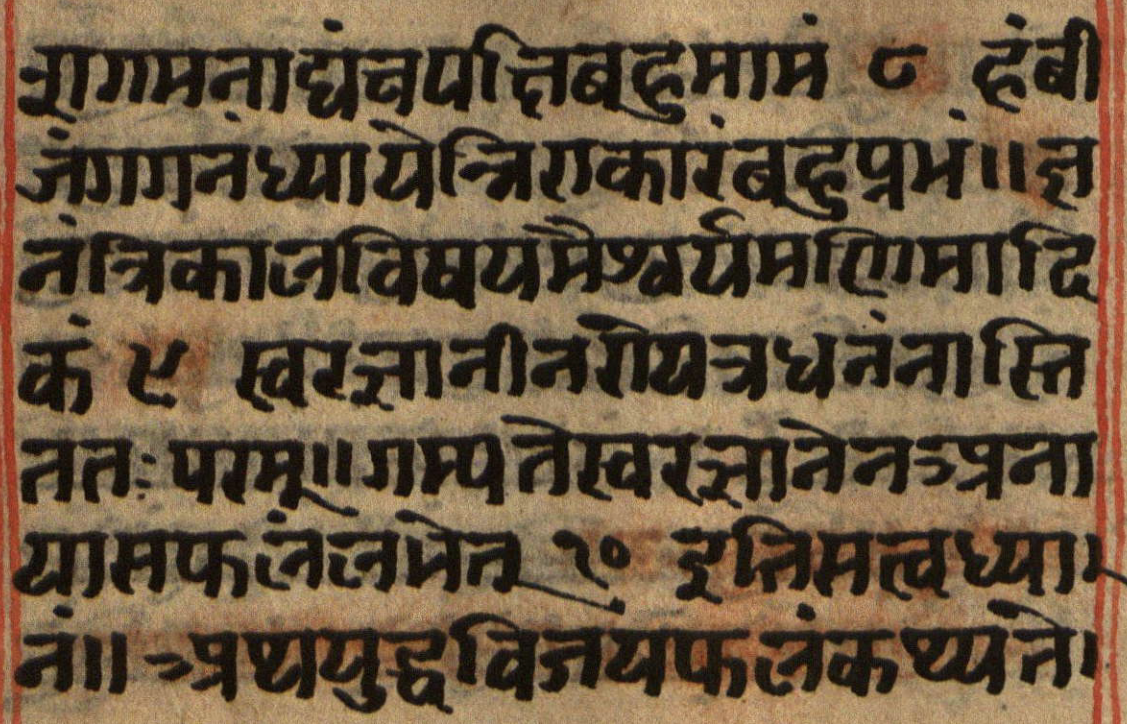 त्रागमनाद्यंचयत्तिबहुमामं ८ हंबी
जंगगनंध्यायेन्निराकारंबहुप्रभं॥ज्ञ
नंत्रिकालविषयमैश्वर्यमणिमादि
कं ९ स्वरज्ञानीनरोयत्रधनंनास्ति
ततः परम्॥गम्यतेस्वरज्ञानेनअना
यासफलंलभेत् १० इतितत्त्वध्या।
नं॥ अथयुद्धविजयफलंकथ्यते।